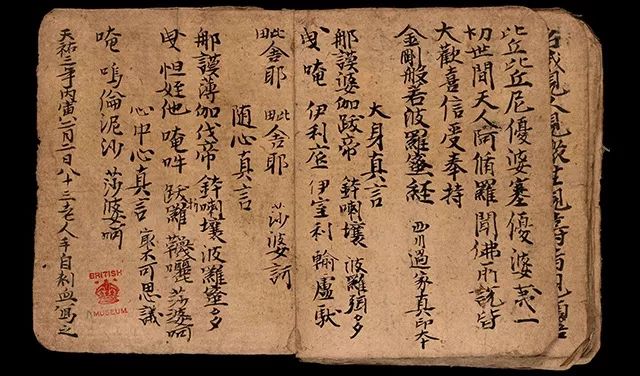 比丘比丘尼優婆塞優婆夷一
切世間天人阿修羅聞佛所說皆
大歡喜信受奉持
金剛般若波羅蜜經 西川過家真印本
大身真言
那謨婆伽跋帝 鉢喇壤 波羅弭多
曳 唵 伊利底 伊室利 輸盧馱
毗舍耶 毗舍耶 莎婆訶
隨心真言
那謨薄伽伐帝 鉢喇壤波羅蜜多
曳 怛姪他 唵吽 跋折羅 襪囇 莎婆呵
心中心真言 最不可思議
唵 嗚倫泥沙 莎婆呵
天祐三年丙寅二月二日八十三老人手自刺血寫之
BRITISH
MUSEUM